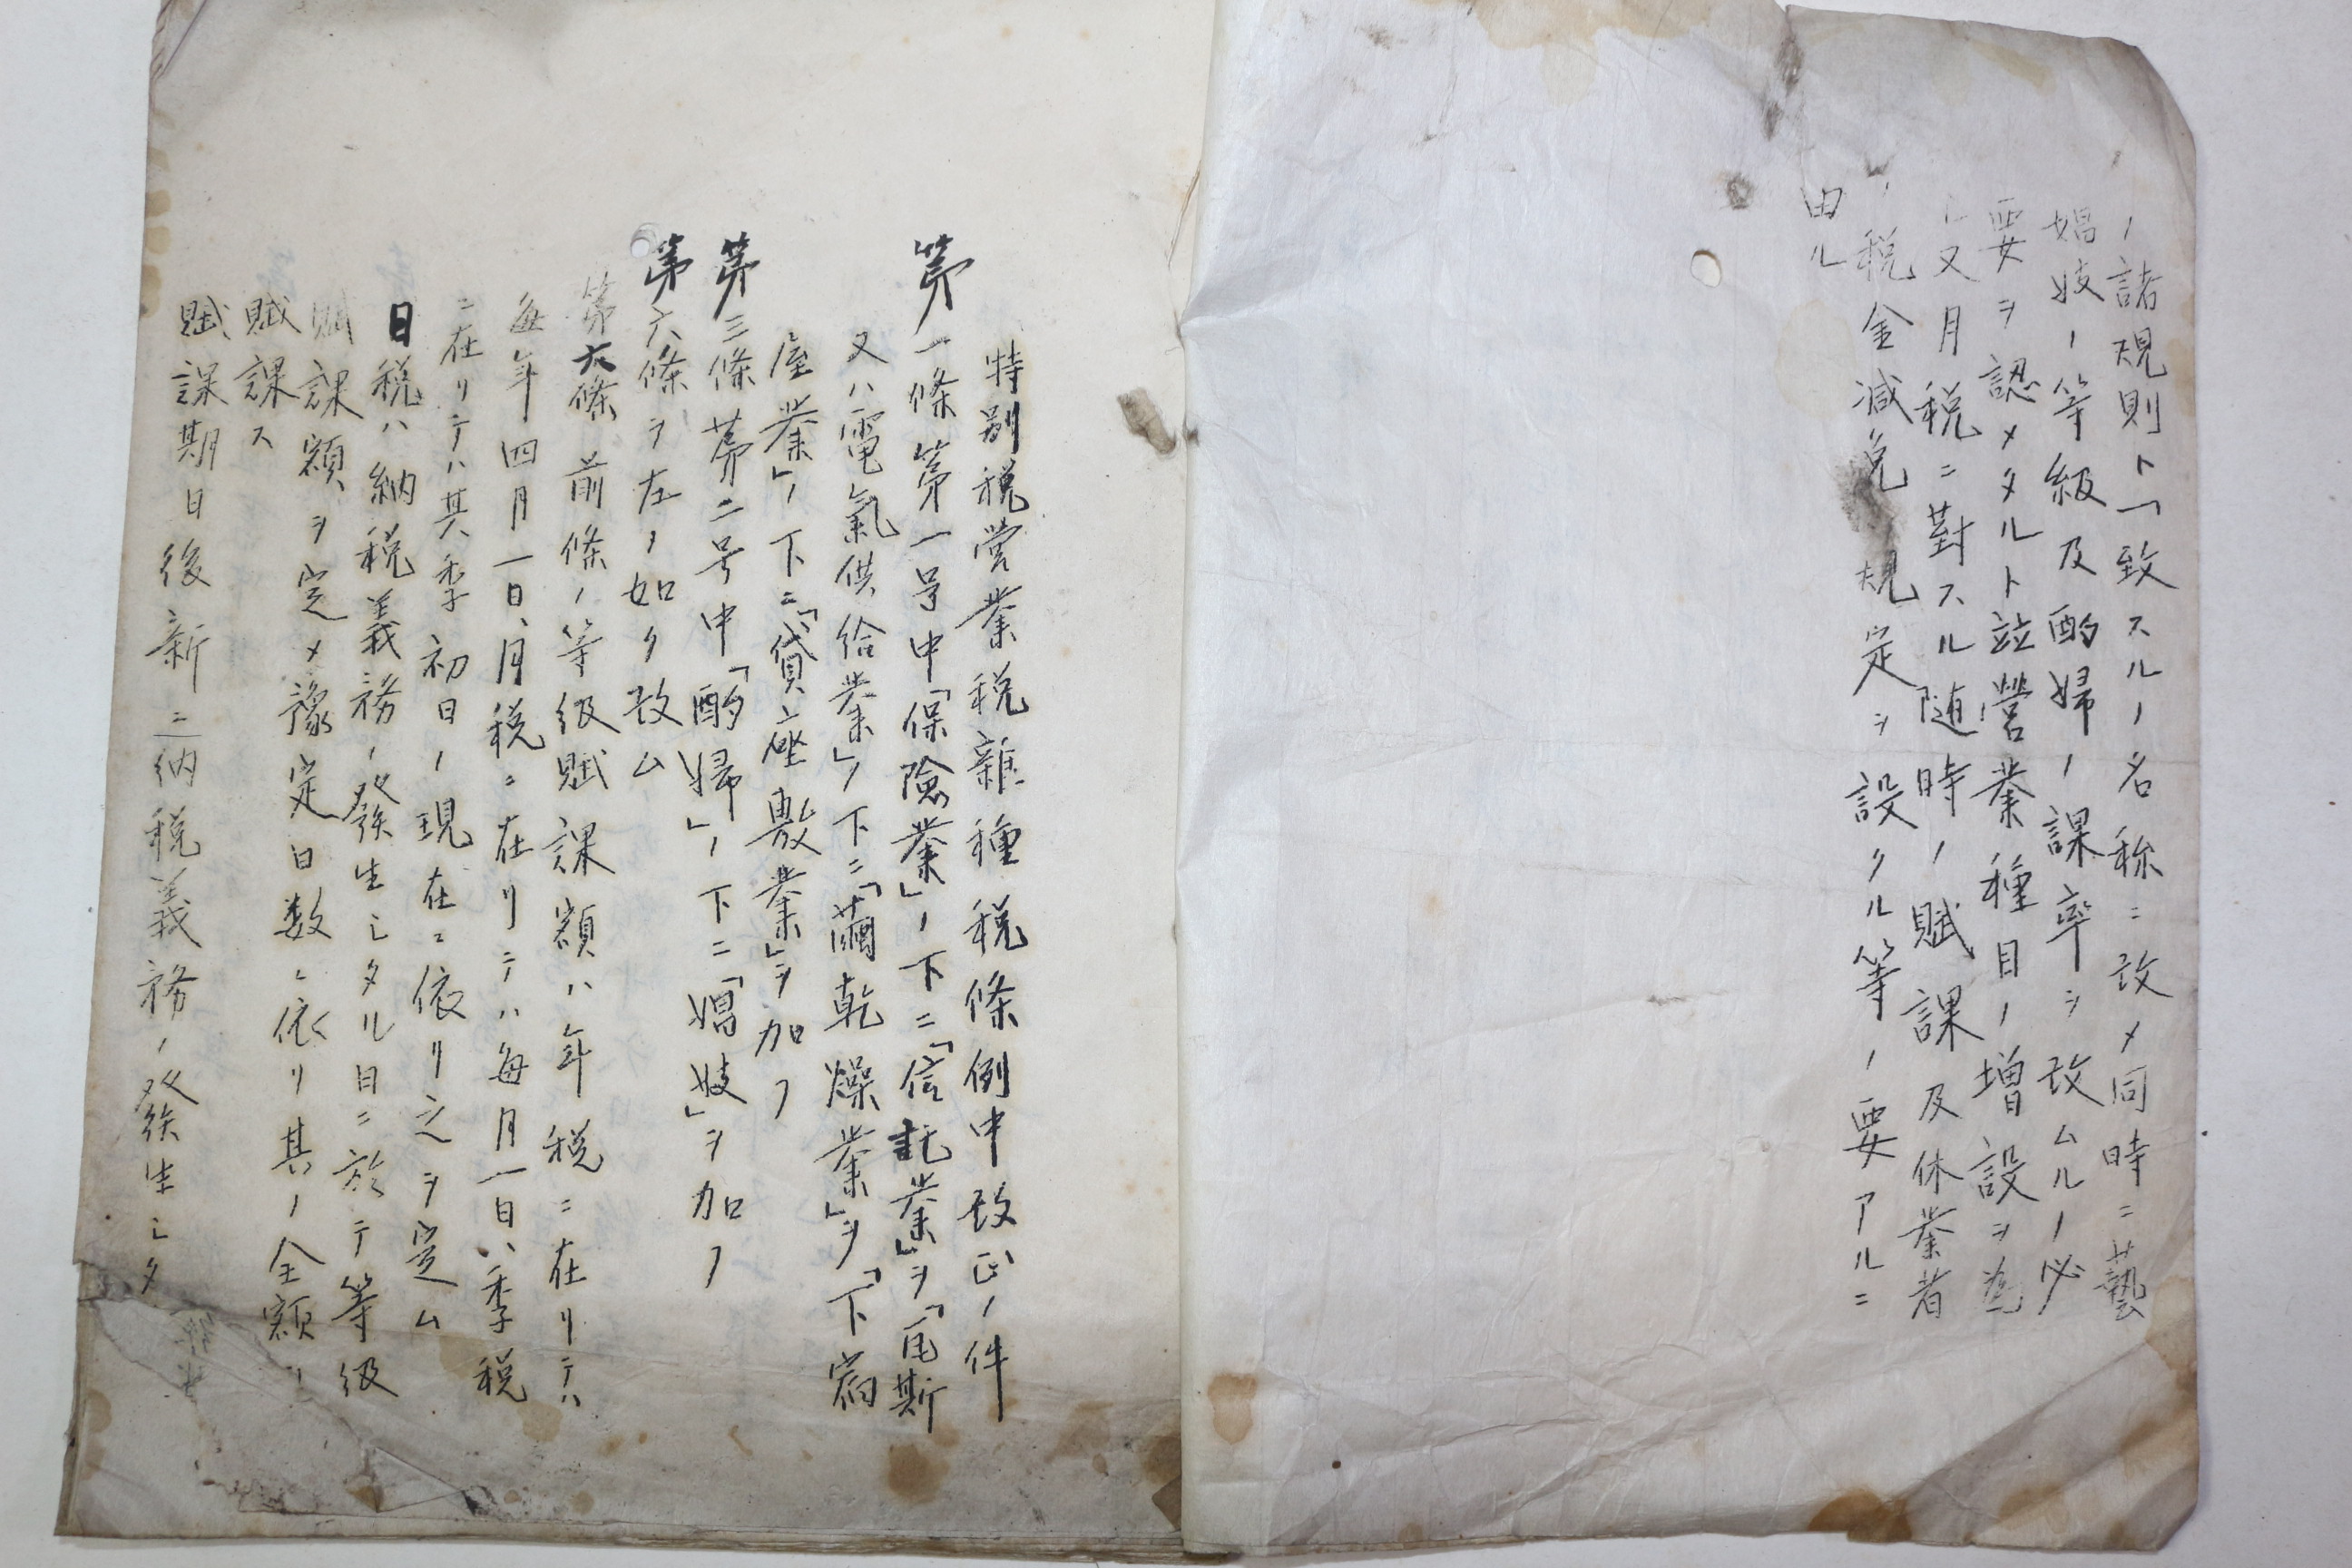 ノ諸規則ト一致スルノ名称ニ改メ同時ニ藝
娼妓ノ等級及酌婦ノ課率ヲ改ムルノ必
要ヲ認メタルト並営業種目ノ増設ヲ為
シ又月税ニ對スル随時ノ賦課及休業者
ノ税金減免規定ヲ設クル等ノ要アルニ
由ル
特別税営業税雜種税條例中改正ノ件
第一條第一号中「保險業」ノ下ニ「信託業」ヲ「瓦斯
又ハ電氣供給業」ノ下ニ「繭乾燥業」ヲ「下宿
屋業」ノ下ニ「貸座敷業」ヲ加フ
第三條第二号中「酌婦」ノ下ニ「娼妓」ヲ加フ
第六條ヲ左ノ如ク改ム
第六條 前條ノ等級賦課額ハ年税ニ在リテハ
毎年四月一日、月税ニ在リテハ毎月一日、季税
ニ在リテハ其季初日ノ現在ニ依リ之ヲ定ム
日税ハ納税義務ノ發生シタル日ニ於テ等級
賦課額ヲ定メ豫定日数ニ依リ其ノ全額ヲ
賦課ス
賦課期日後新ニ納税義務ノ發生シタ